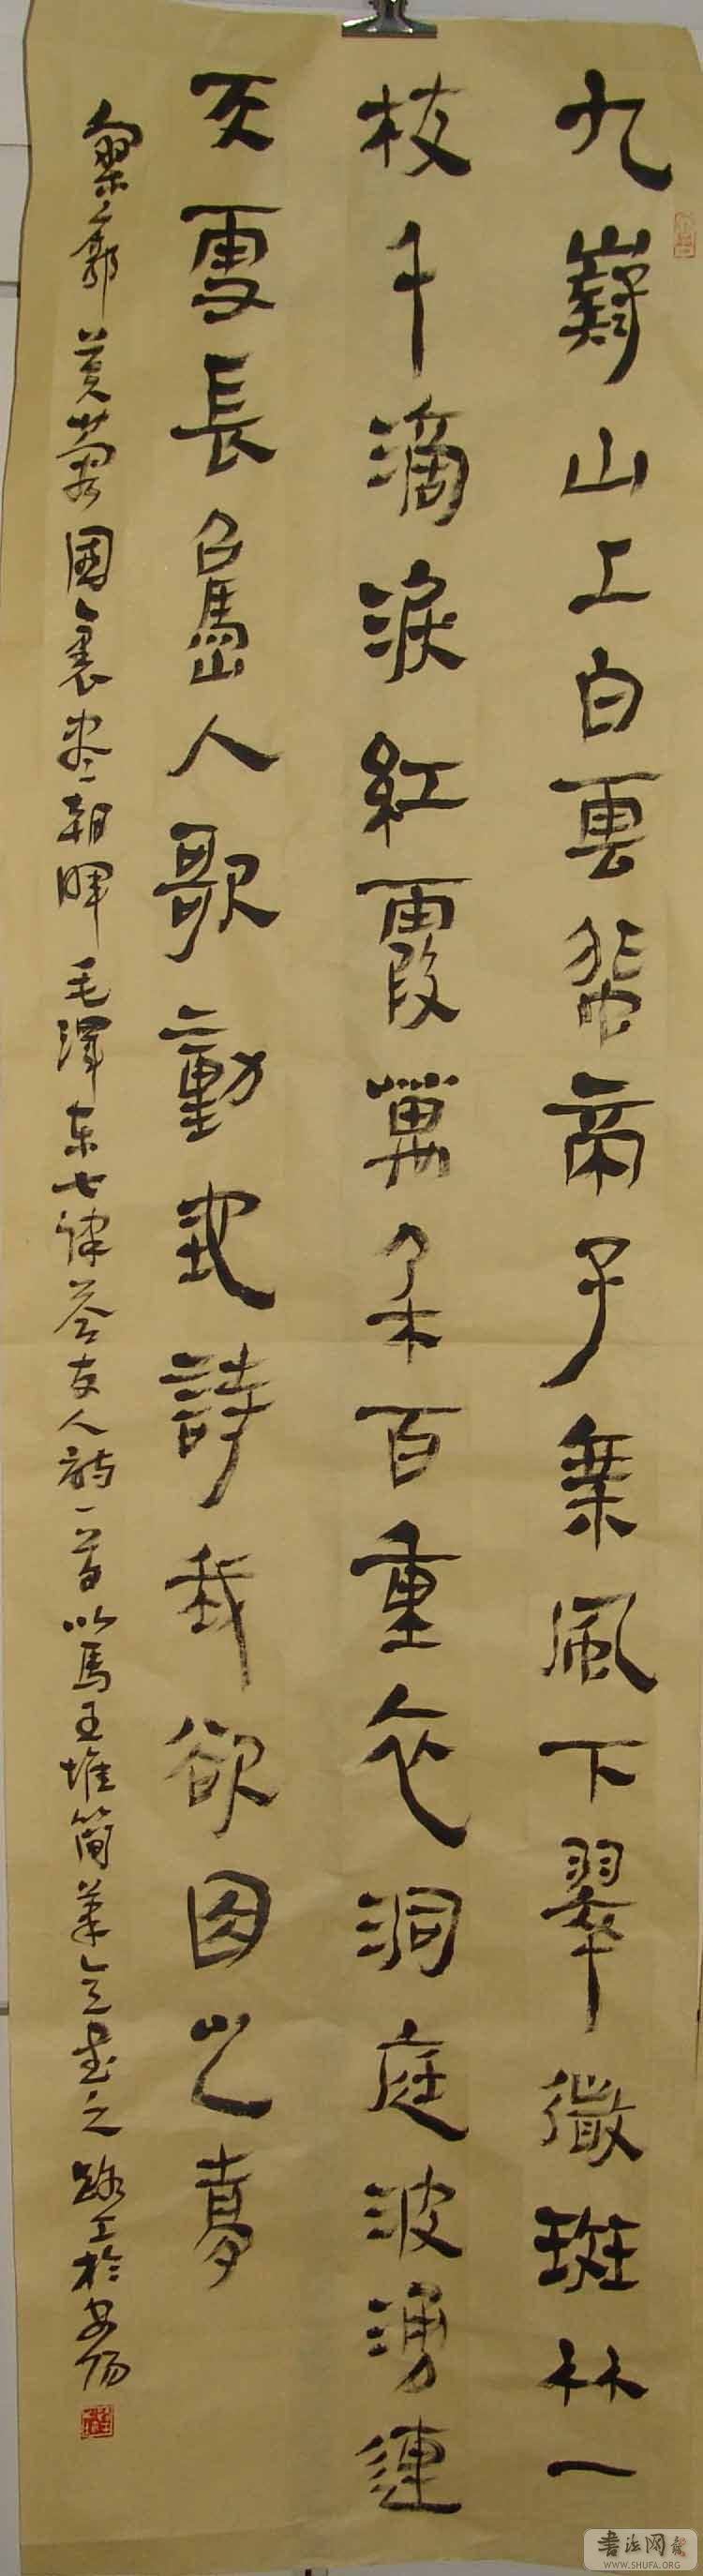 九嶷山上白雲飛帝子乘風下翠微斑竹一
枝千滴淚紅霞萬朵百重衣洞庭波湧連
天雪長島人歌動地詩我欲因之夢
寥廓芙蓉國裏盡朝暉 毛澤東七律答友人詩一首以馬王堆簡筆意書之 路工於安陽
書法网
WWW.SHUFA.ORG